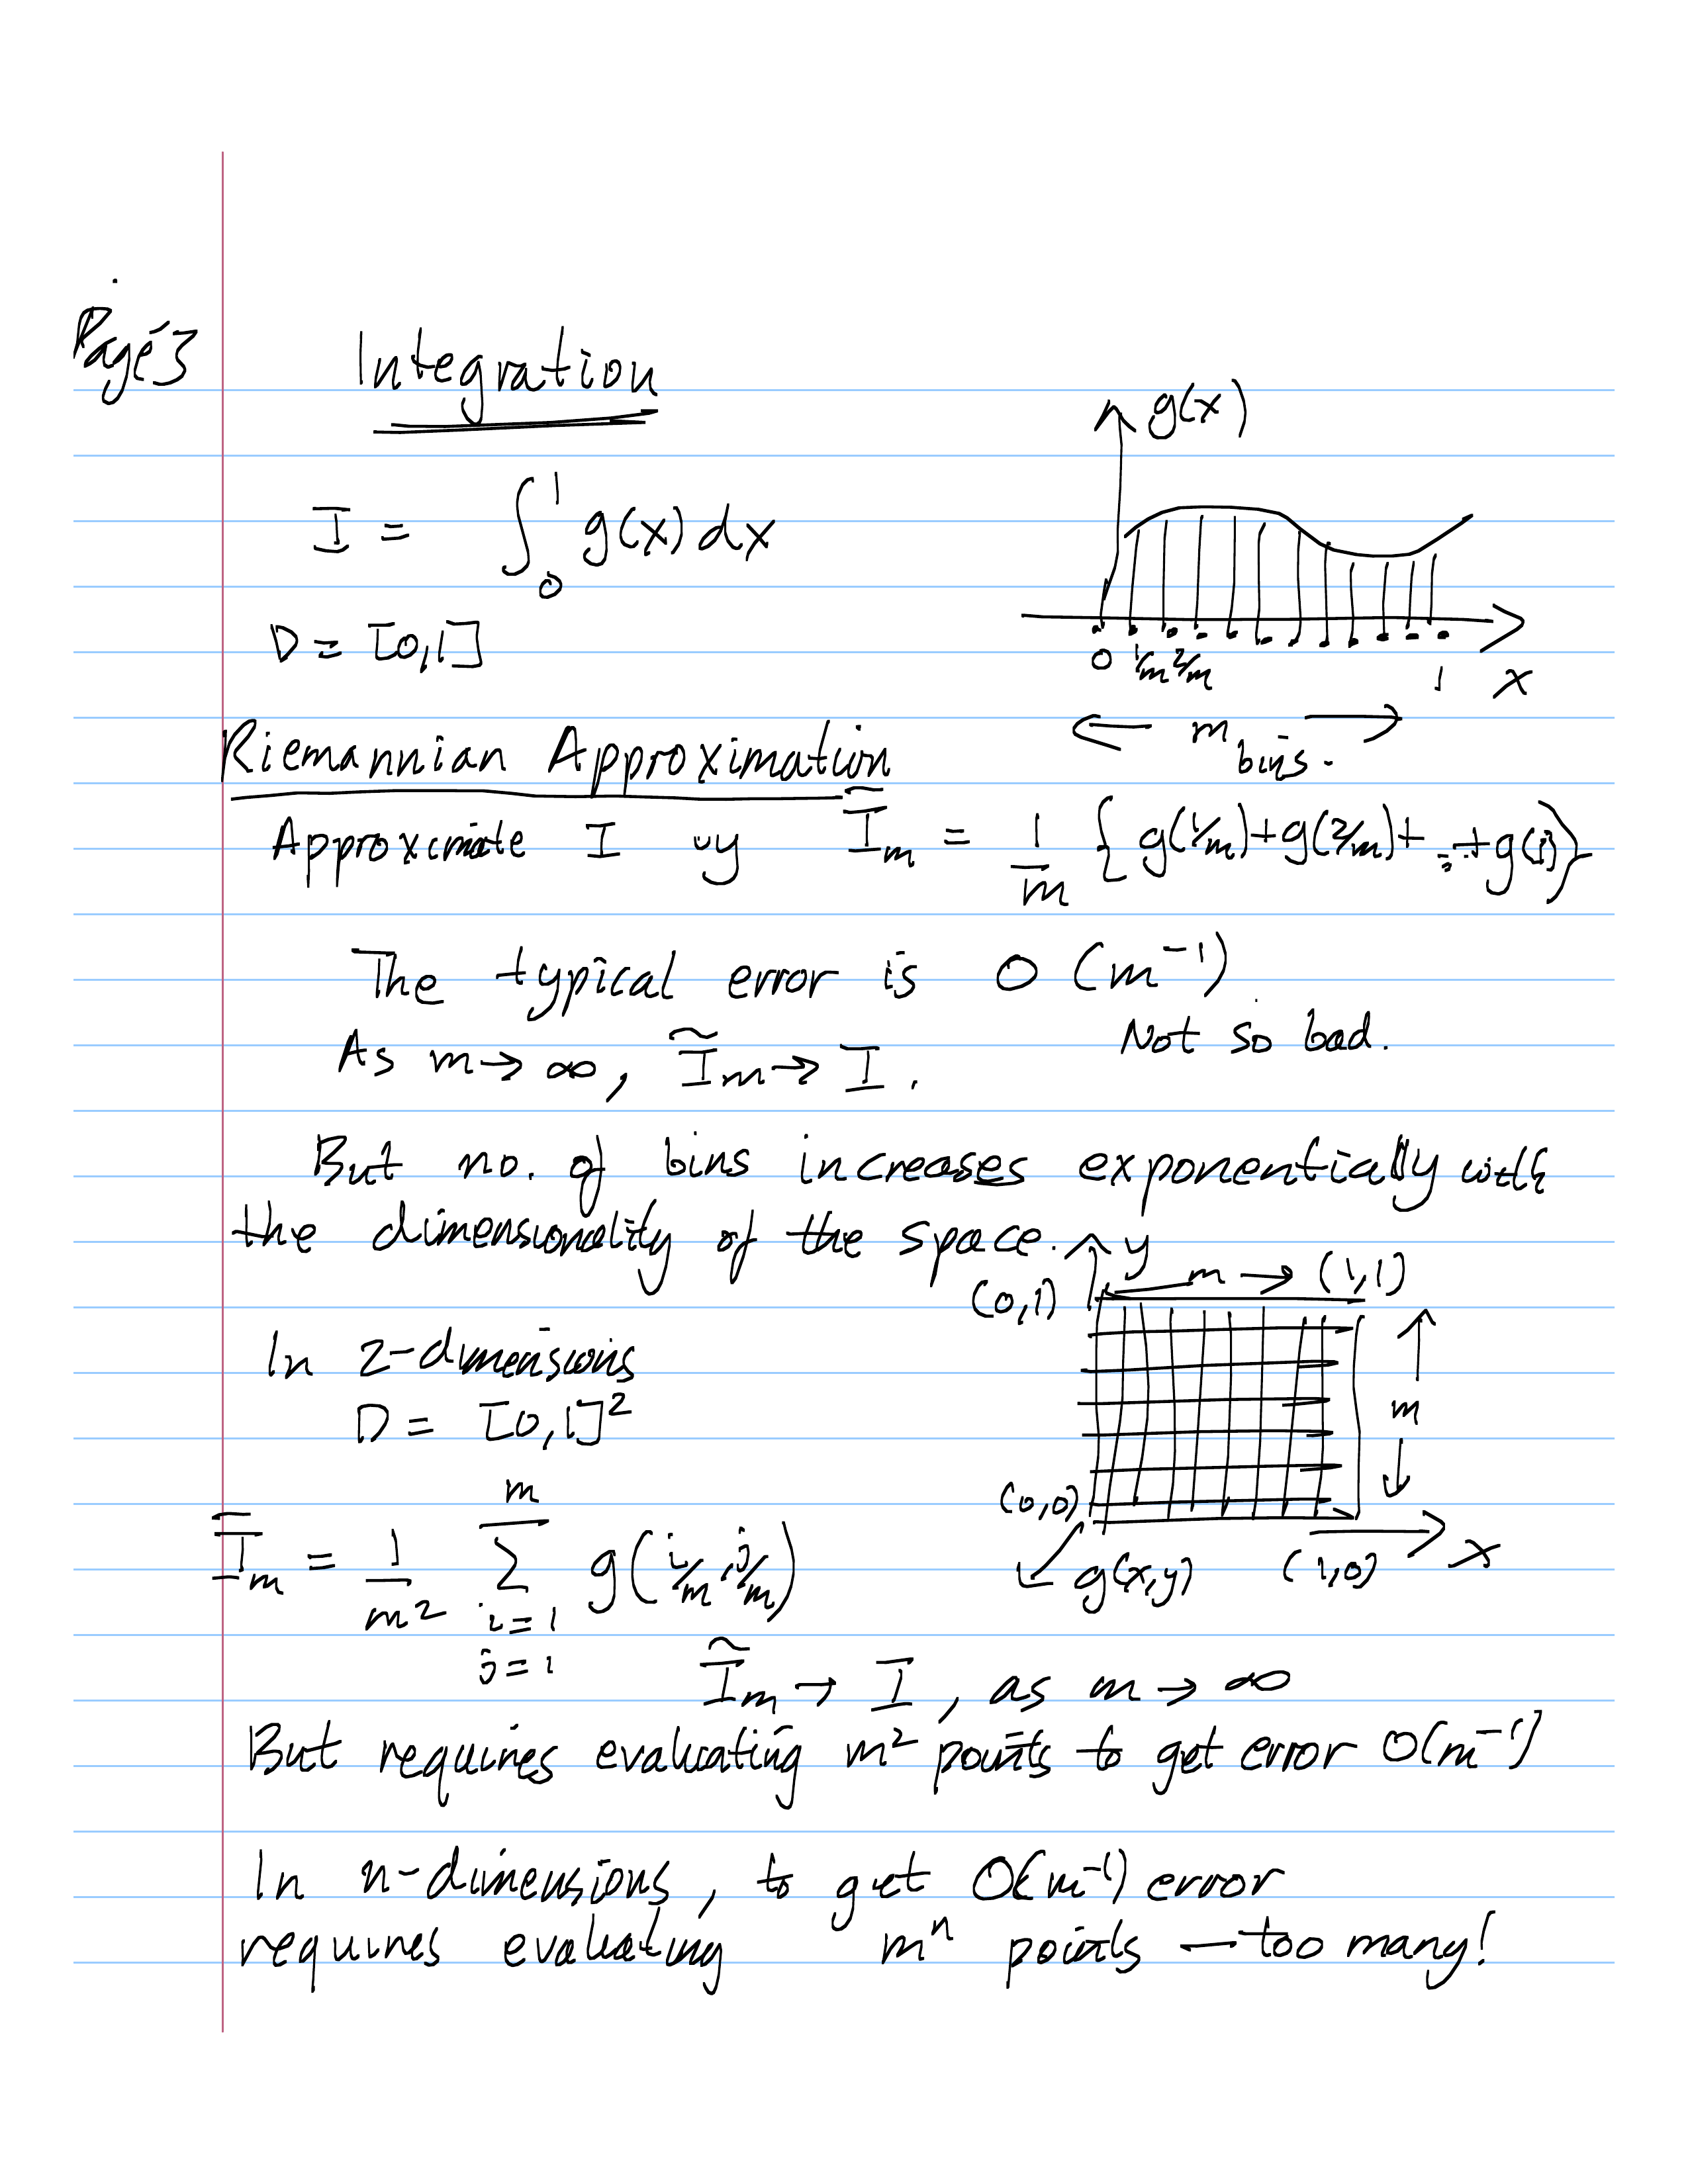 Page 3
Integration
g(x)
I = ∫₀¹ g(x) dx
D = [0,1]
0 1/m 2/m 1 x
← m bins. →
Riemannian Approximation
Approximate I by Ĩₘ = 1/m { g(1/m) + g(2/m) + ... + g(1) }
The typical error is O(m⁻¹)
Not so bad.
As m → ∞, Ĩₘ → I.
But no. of bins increases exponentially with
the dimensionality of the space.
y
m → (1,1)
(0,1)
In 2-dimensions
D = [0,1]²
↑ m ↓
(0,0)
(1,0) x
g(x,y)
Ĩₘ = 1/m² Σ_{i=1, j=1}^{m} g(i/m, j/m)
Ĩₘ → I, as m → ∞
But requires evaluating m² points to get error O(m⁻¹)
In n-dimensions, to get O(m⁻¹) error
requires evaluating mⁿ points — too many!